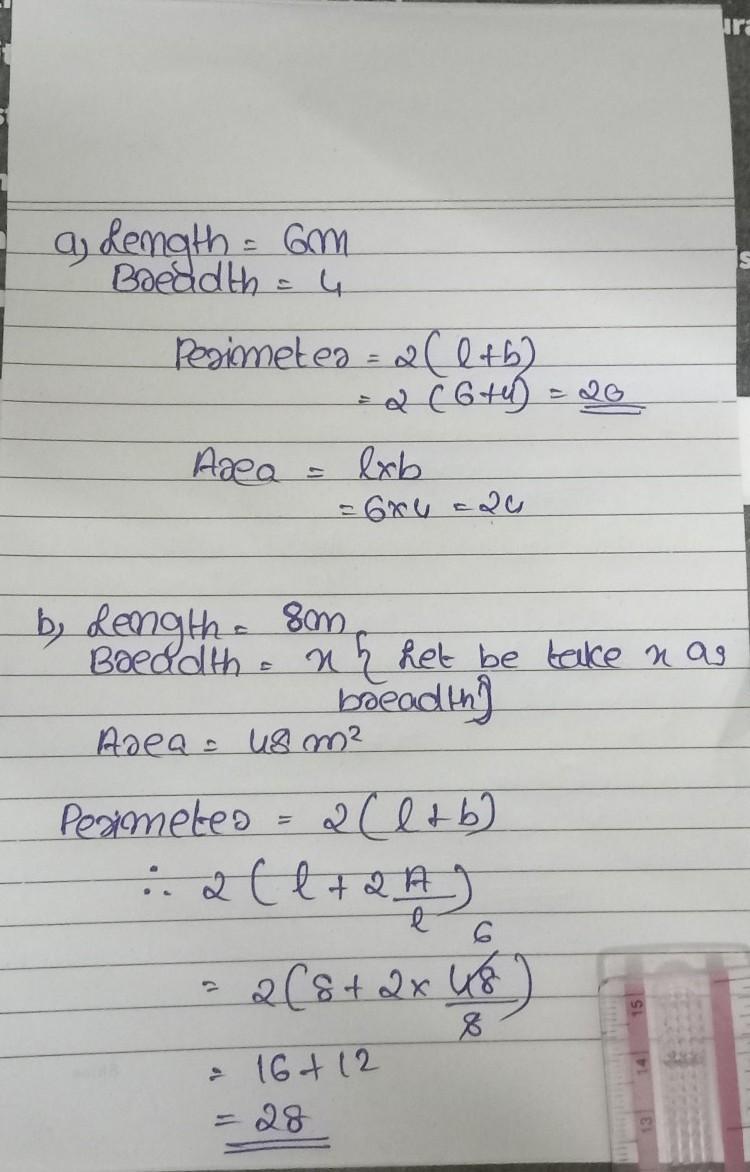 a) Length = 6m
Breadth = 4
Perimeter = 2(l+b)
= 2 (6+4) = 20
Area = l×b
= 6×4 = 24
b) Length = 8m
Breadth = x { Let be take x as
breadth}
Area = 48 m²
Perimeter = 2(l+b)
∴ 2 ( l + 2 A/l )
6
= 2(8 + 2× 48/8 )
= 16+12
= 28
15
14
13